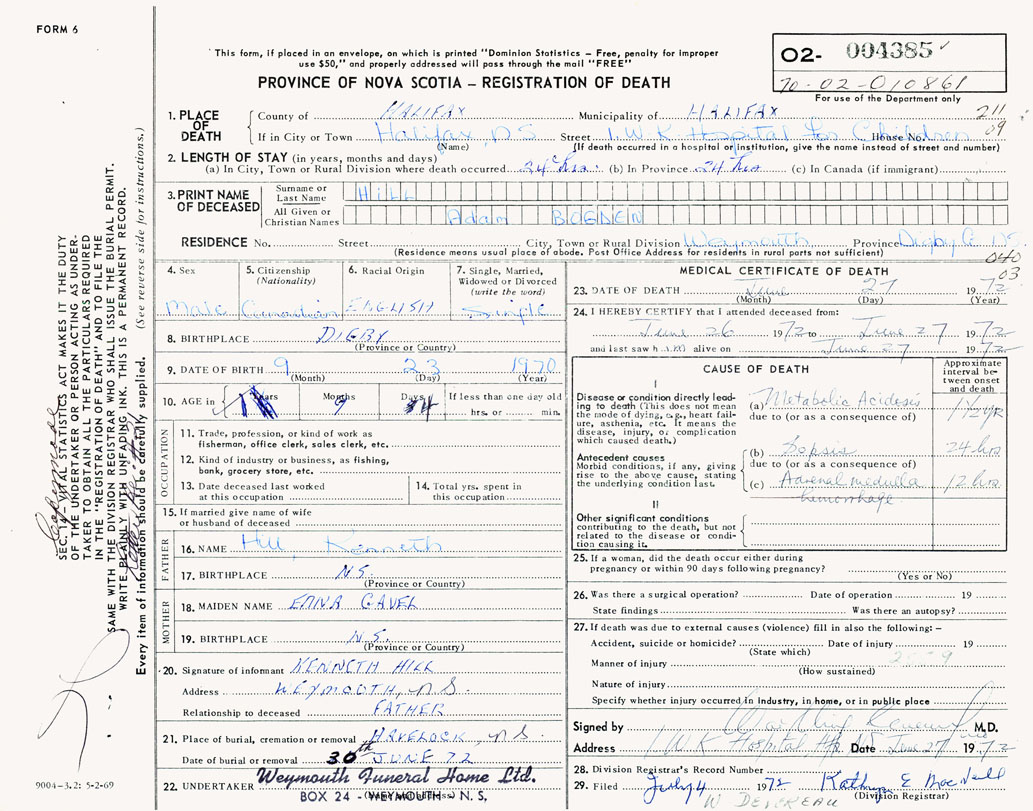 FORM 6
"This form, if placed in an envelope, on which is printed "Dominion Statistics – Free, penalty for improper
use $50," and properly addressed will pass through the mail "FREE"
PROVINCE OF NOVA SCOTIA – REGISTRATION OF DEATH
O2- 004385
70-02-010861
For use of the Department only
211
09
1. PLACE OF DEATH
County of HALIFAX Municipality of HALIFAX
If in City or Town Halifax, N.S. Street I.W.K Hospital for Children House No.
(Name) (If death occurred in a hospital or institution, give the name instead of street and number)
2. LENGTH OF STAY (in years, months and days)
(a) In City, Town or Rural Division where death occurred 24 hrs. (b) In Province 24 hrs (c) In Canada (if immigrant)
3. PRINT NAME OF DECEASED
Surname or Last Name Hill
All Given or Christian Names Adam
RESIDENCE No. Street City, Town or Rural Division Weymouth Province Digby Co. N.S.
(Residence means usual place of abode. Post Office Address for residents in rural parts not sufficient)
040
03
4. Sex Male
5. Citizenship (Nationality) Canadian
6. Racial Origin ENGLISH
7. Single, Married, Widowed or Divorced (write the word) Single
8. BIRTHPLACE DIGBY
(Province or Country)
9. DATE OF BIRTH 9 23 1970
(Month) (Day) (Year)
10. AGE in Years Months 9 Days If less than one day old
hrs. or min.
OCCUPATION
11. Trade, profession, or kind of work as
fisherman, office clerk, sales clerk, etc.
12. Kind of industry or business, as fishing,
bank, grocery store, etc.
13. Date deceased last worked
at this occupation
14. Total yrs. spent in
this occupation
15. If married give name of wife
or husband of deceased
FATHER
16. NAME Hill, Kenneth
17. BIRTHPLACE N.S.
(Province or Country)
MOTHER
18. MAIDEN NAME EDNA GAVEL
19. BIRTHPLACE N.S.
(Province or Country)
20. Signature of informant KENNETH HILL
Address WEYMOUTH, N.S.
Relationship to deceased FATHER
21. Place of burial, cremation or removal HAVELOCK, N.S.
Date of burial or removal 30th JUNE 72
22. UNDERTAKER Weymouth Funeral Home Ltd.
BOX 24 - WEYMOUTH - N. S.
MEDICAL CERTIFICATE OF DEATH
23. DATE OF DEATH June 27 1972
(Month) (Day) (Year)
24. I HEREBY CERTIFY that I attended deceased from:
June 26 1972 to June 27 1972
and last saw him alive on June 27 1972
CAUSE OF DEATH
Approximate interval between onset and death
I
Disease or condition directly leading to death (This does not mean the mode of dying, e.g., heart failure, asthenia, etc. It means the disease, injury, or complication which caused death.)
(a) Metabolic Acidosis 1 1/2 yr
due to (or as a consequence of)
Antecedent causes
Morbid conditions, if any, giving rise to the above cause, stating the underlying condition last.
(b) Sepsis 24 hrs
due to (or as a consequence of)
(c) Adrenal medulla 12 hrs
hemorrhage
II
Other significant conditions
contributing to the death, but not related to the disease or condition causing it.
25. If a woman, did the death occur either during
pregnancy or within 90 days following pregnancy?
(Yes or No)
26. Was there a surgical operation? Date of operation 19
State findings Was there an autopsy?
27. If death was due to external causes (violence) fill in also the following: –
Accident, suicide or homicide? Date of injury 19
(State which)
Manner of injury
(How sustained)
Nature of injury
Specify whether injury occurred in industry, in home, or in public place
Signed by M.D.
Address I W K Hospital Date June 27 1972
28. Division Registrar's Record Number
29. Filed July 4 1972 Kathryn E MacNeill
(Division Registrar)
SEC. 14 - VITAL STATISTICS ACT MAKES IT THE DUTY
OF THE UNDERTAKER OR PERSON ACTING AS UNDER-
TAKER TO OBTAIN ALL THE PARTICULARS REQUIRED
IN THE "REGISTRATION OF DEATH" AND TO FILE THE
SAME WITH THE DIVISION REGISTRAR WHO SHALL ISSUE THE BURIAL PERMIT.
WRITE PLAINLY WITH UNFADING INK. THIS IS A PERMANENT RECORD.
Every item of information should be carefully supplied. (See reverse side for instructions.)
9004-3.2: 5-2-69